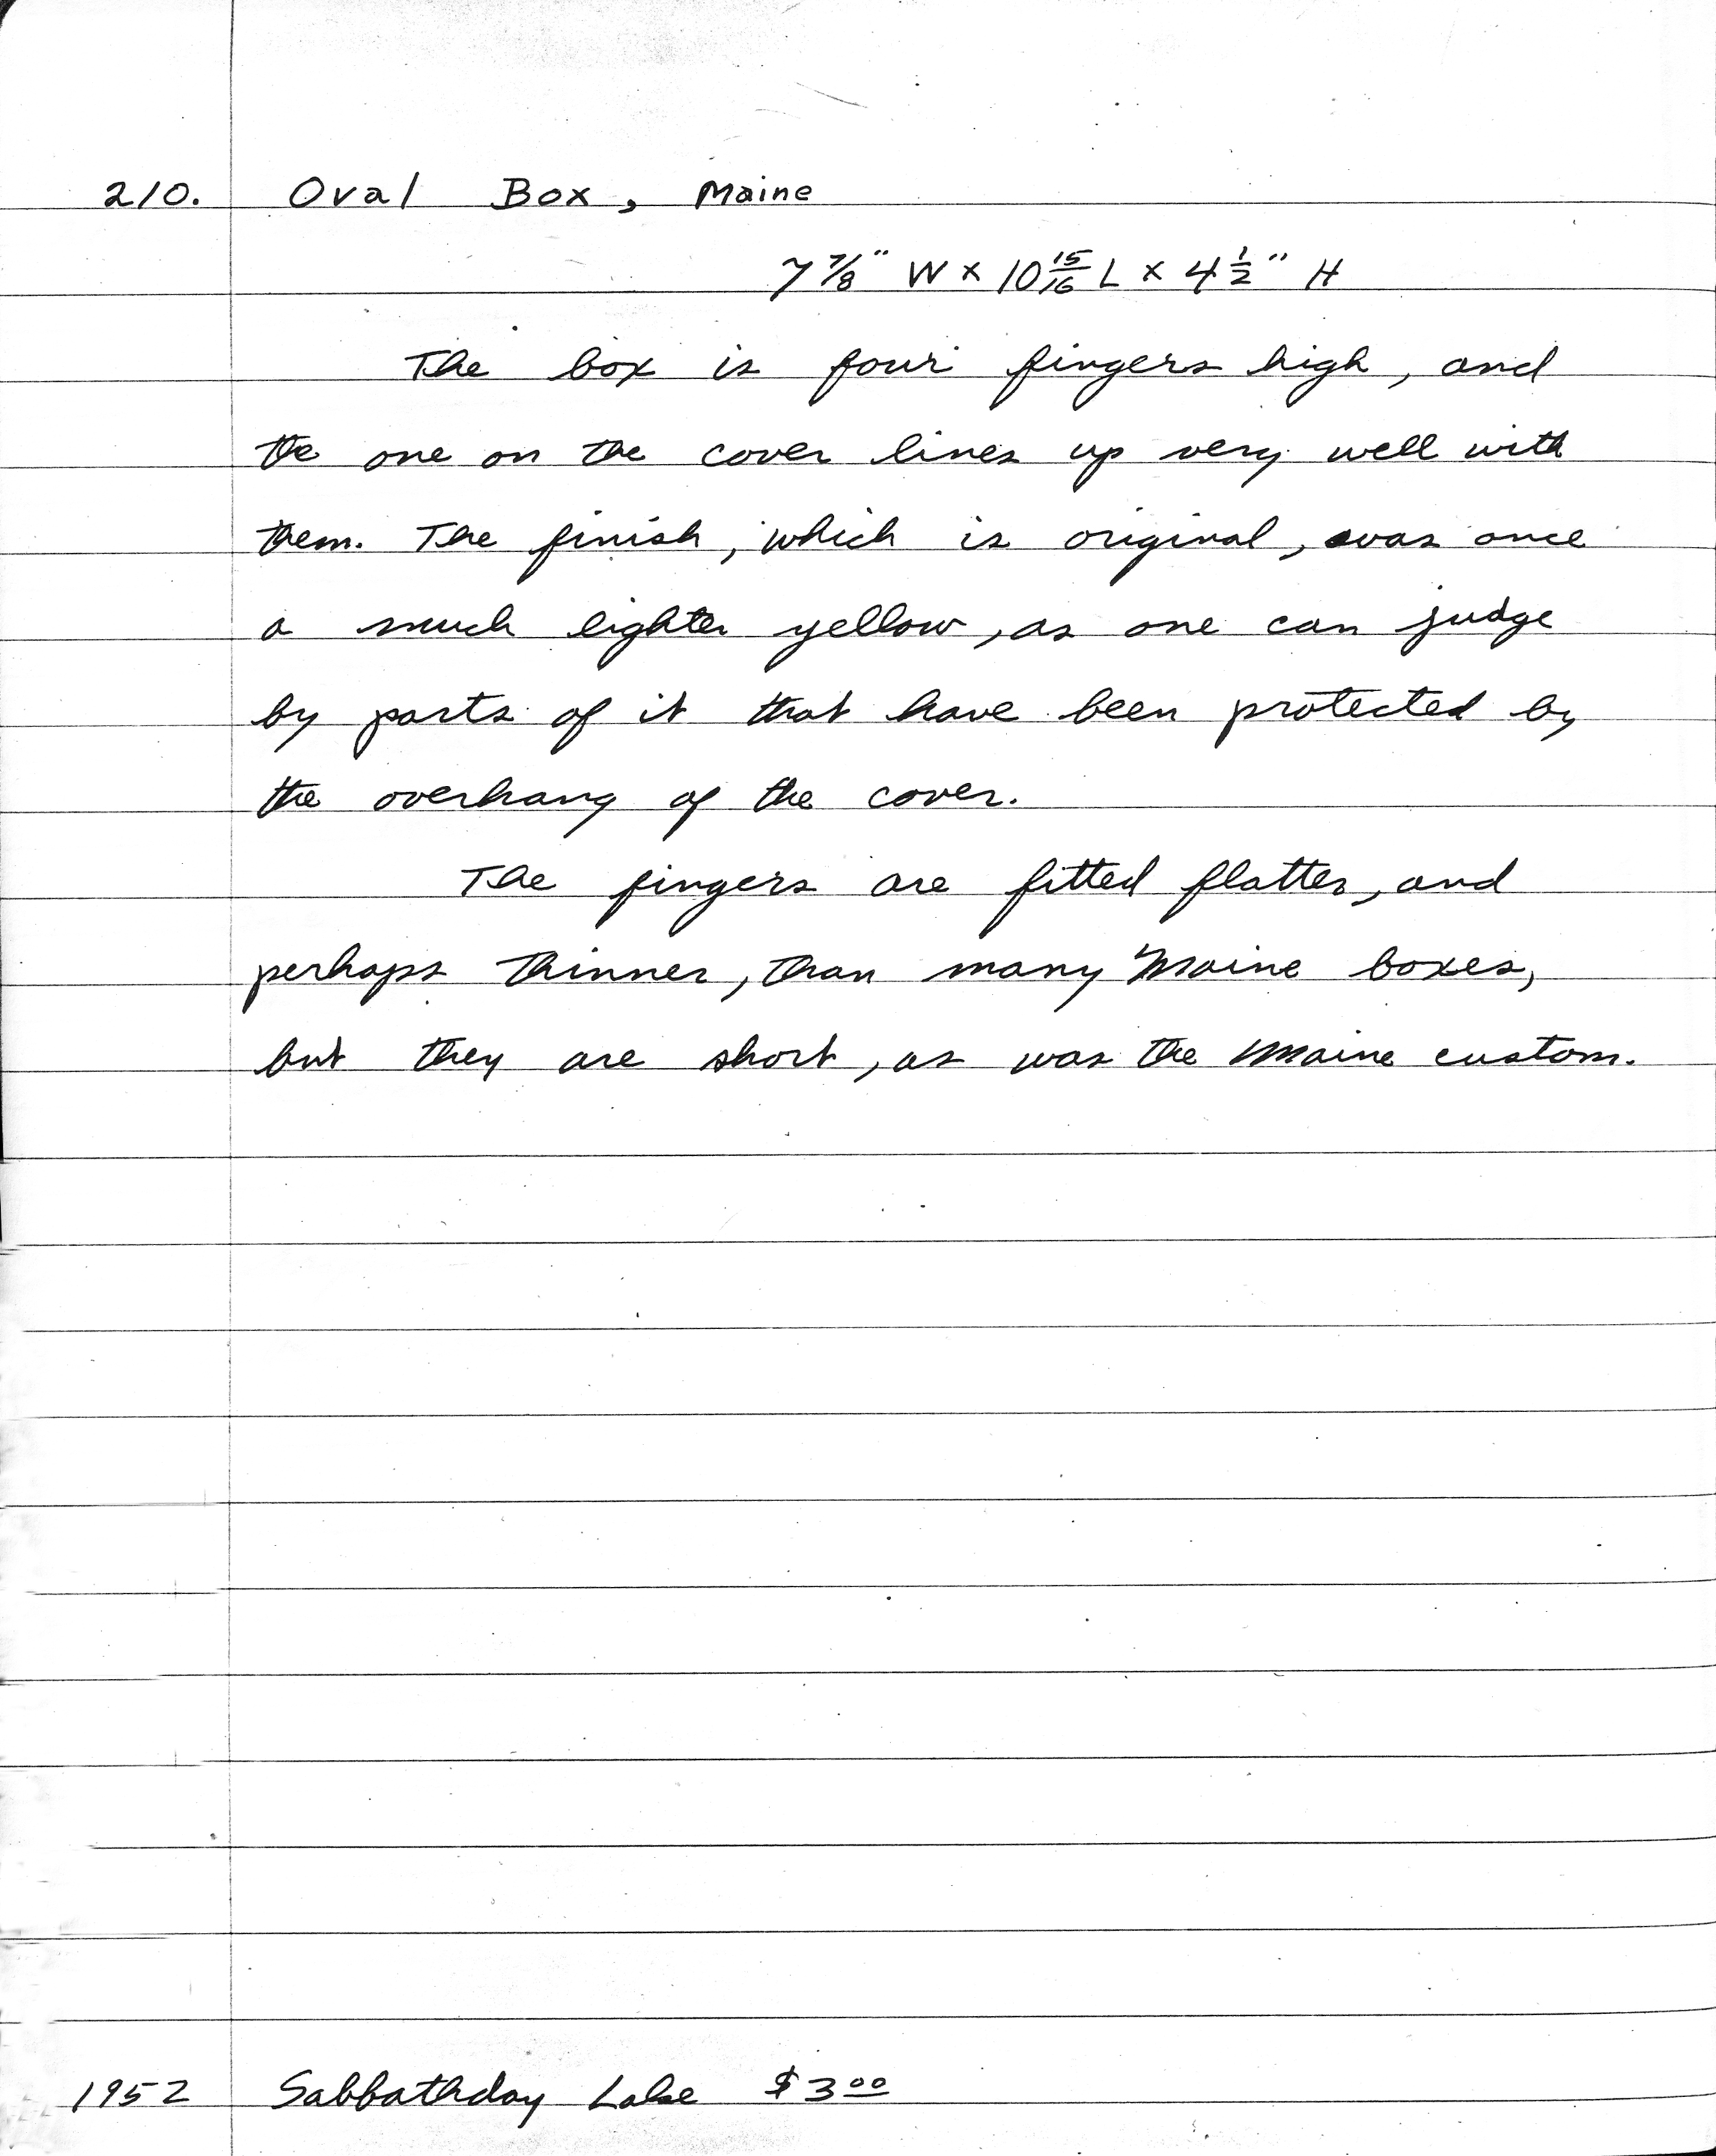 210. Oval Box, Maine
7 7/8" W x 10 15/16 L x 4 1/2" H
The box is four fingers high, and
the one on the cover lines up very well with
them. The finish, which is original, was once
a much lighter yellow, as one can judge
by parts of it that have been protected by
the overhang of the cover.
The fingers are fitted flatter, and
perhaps thinner, than many Maine boxes,
but they are short, as was the Maine custom.
1952 Sabbathday Lake $3.00